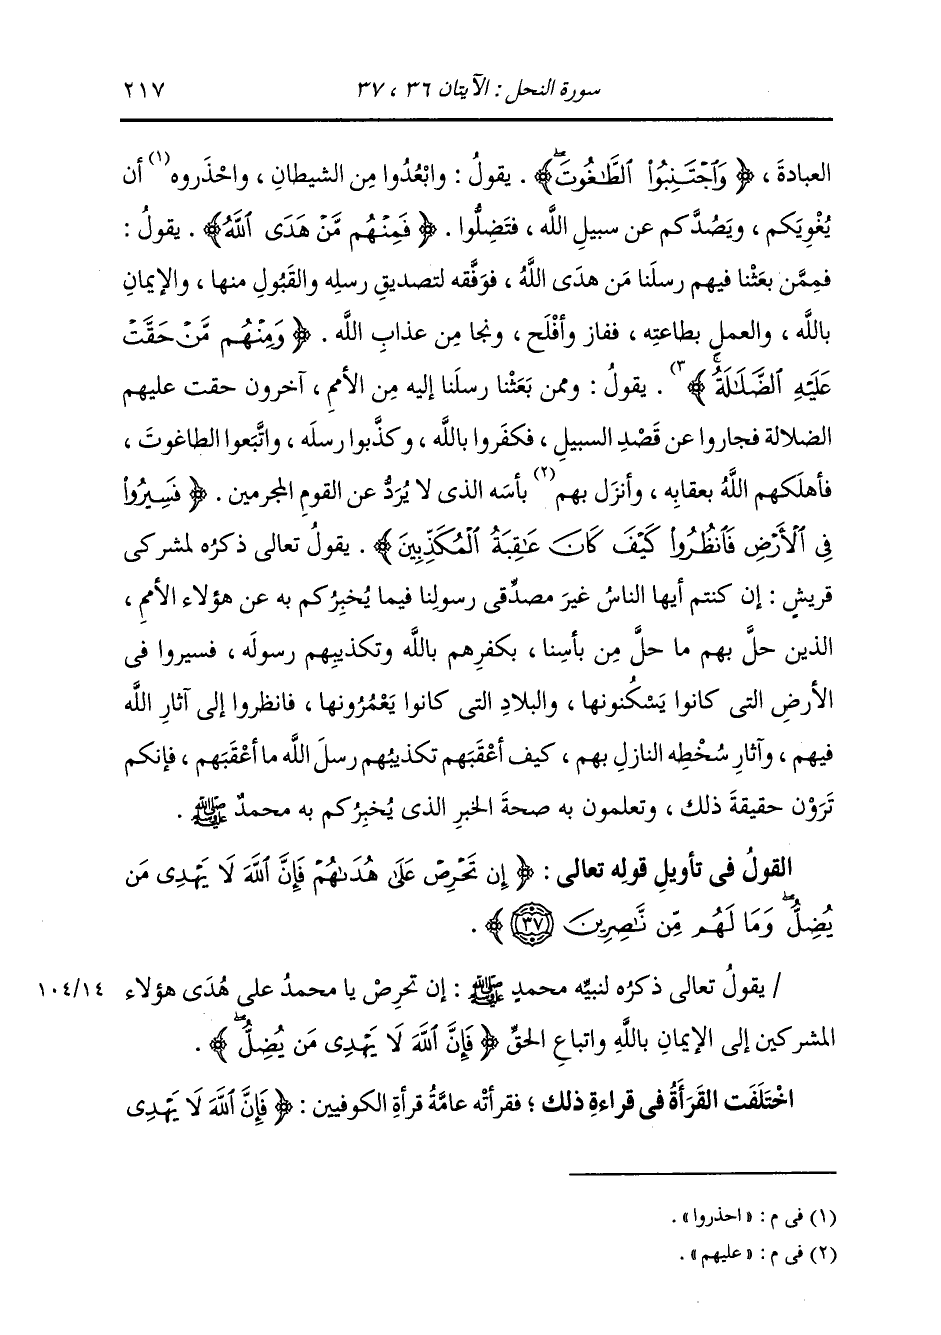 سورة النحل : الآيتان ٣٦ ، ٣٧ ٢١٧
العبادةَ ، ﴿ وَٱجْتَنِبُوا۟ ٱلطَّـٰغُوتَۖ ﴾ . يقولُ : وابْعُدُوا مِن الشيطانِ ، واحْذَروه(١) أن
يُغْوِيَكم ، ويَصُدَّكم عن سبيلِ اللَّه ، فتَضِلُّوا . ﴿ فَمِنْهُم مَّنْ هَدَى ٱللَّهُ ﴾ . يقولُ :
فمِمَّن بعَثْنا فيهم رسلَنا مَن هدَى اللَّهُ ، فوَفَّقه لتصديقِ رسلِه والقَبُولِ منها ، والإيمانِ
باللَّه ، والعملِ بطاعتِه ، ففاز وأفْلَح ، ونجا مِن عذابِ اللَّه . ﴿ وَمِنْهُم مَّنْ حَقَّتْ
عَلَيْهِ ٱلضَّلَـٰلَةُۚ ﴾(٣) . يقولُ : وممن بَعَثْنا رسلَنا إليه مِن الأممِ ، آخرون حقت عليهم
الضلالة فجاروا عن قَصْدِ السبيلِ ، فكفَروا باللَّه ، وكذَّبوا رسلَه ، واتَّبَعوا الطاغوتَ ،
فأهلَكهم اللَّهُ بعقابِه ، وأنزَل بهم(٢) بأسَه الذى لا يُرَدُّ عن القومِ المجرمين . ﴿ فَسِيرُوا۟
فِى ٱلْأَرْضِ فَٱنظُرُوا۟ كَيْفَ كَانَ عَـٰقِبَةُ ٱلْمُكَذِّبِينَ ﴾ . يقولُ تعالى ذكرُه لمشركى
قريشٍ : إن كنتم أيها الناسُ غيرَ مصدِّقى رسولِنا فيما يُخبِرُكم به عن هؤلاء الأممِ ،
الذين حلَّ بهم ما حلَّ مِن بأسِنا ، بكفرِهم باللَّه وتكذيبِهم رسولَه ، فسيروا فى
الأرضِ التى كانوا يَسْكُنونها ، والبلادِ التى كانوا يَعْمُرُونها ، فانظروا إلى آثارِ اللَّه
فيهم ، وآثارِ سُخْطِه النازلِ بهم ، كيف أعْقَبَهم تكذيبُهم رسلَ اللَّه ما أعْقَبَهم ، فإنكم
تَرَوْن حقيقةَ ذلك ، وتعلمون به صحةَ الخبرِ الذى يُخبِرُكم به محمدٌ ﷺ .
القولُ فى تأويلِ قولِه تعالى : ﴿ إِن تَحْرِصْ عَلَىٰ هُدَىٰهُمْ فَإِنَّ ٱللَّهَ لَا يَهْدِى مَن
يُضِلُّۖ وَمَا لَهُم مِّن نَّـٰصِرِينَ ٣٧ ﴾ .
/ يقولُ تعالى ذكرُه لنبيِّه محمدٍ ﷺ : إن تحرِصْ يا محمدُ على هُدَى هؤلاء ١٠٤/١٤
المشركين إلى الإيمانِ باللَّهِ واتباعِ الحقِّ ﴿ فَإِنَّ ٱللَّهَ لَا يَهْدِى مَن يُضِلُّۖ ﴾ .
اخْتَلَفَت القَرَأَةُ فى قراءةِ ذلك ؛ فقرأتْه عامَّةُ قرأةِ الكوفيين : ﴿ فَإِنَّ ٱللَّهَ لَا يَهْدِى
(١) فى م : « احذروا » .
(٢) فى م : « عليهم » .